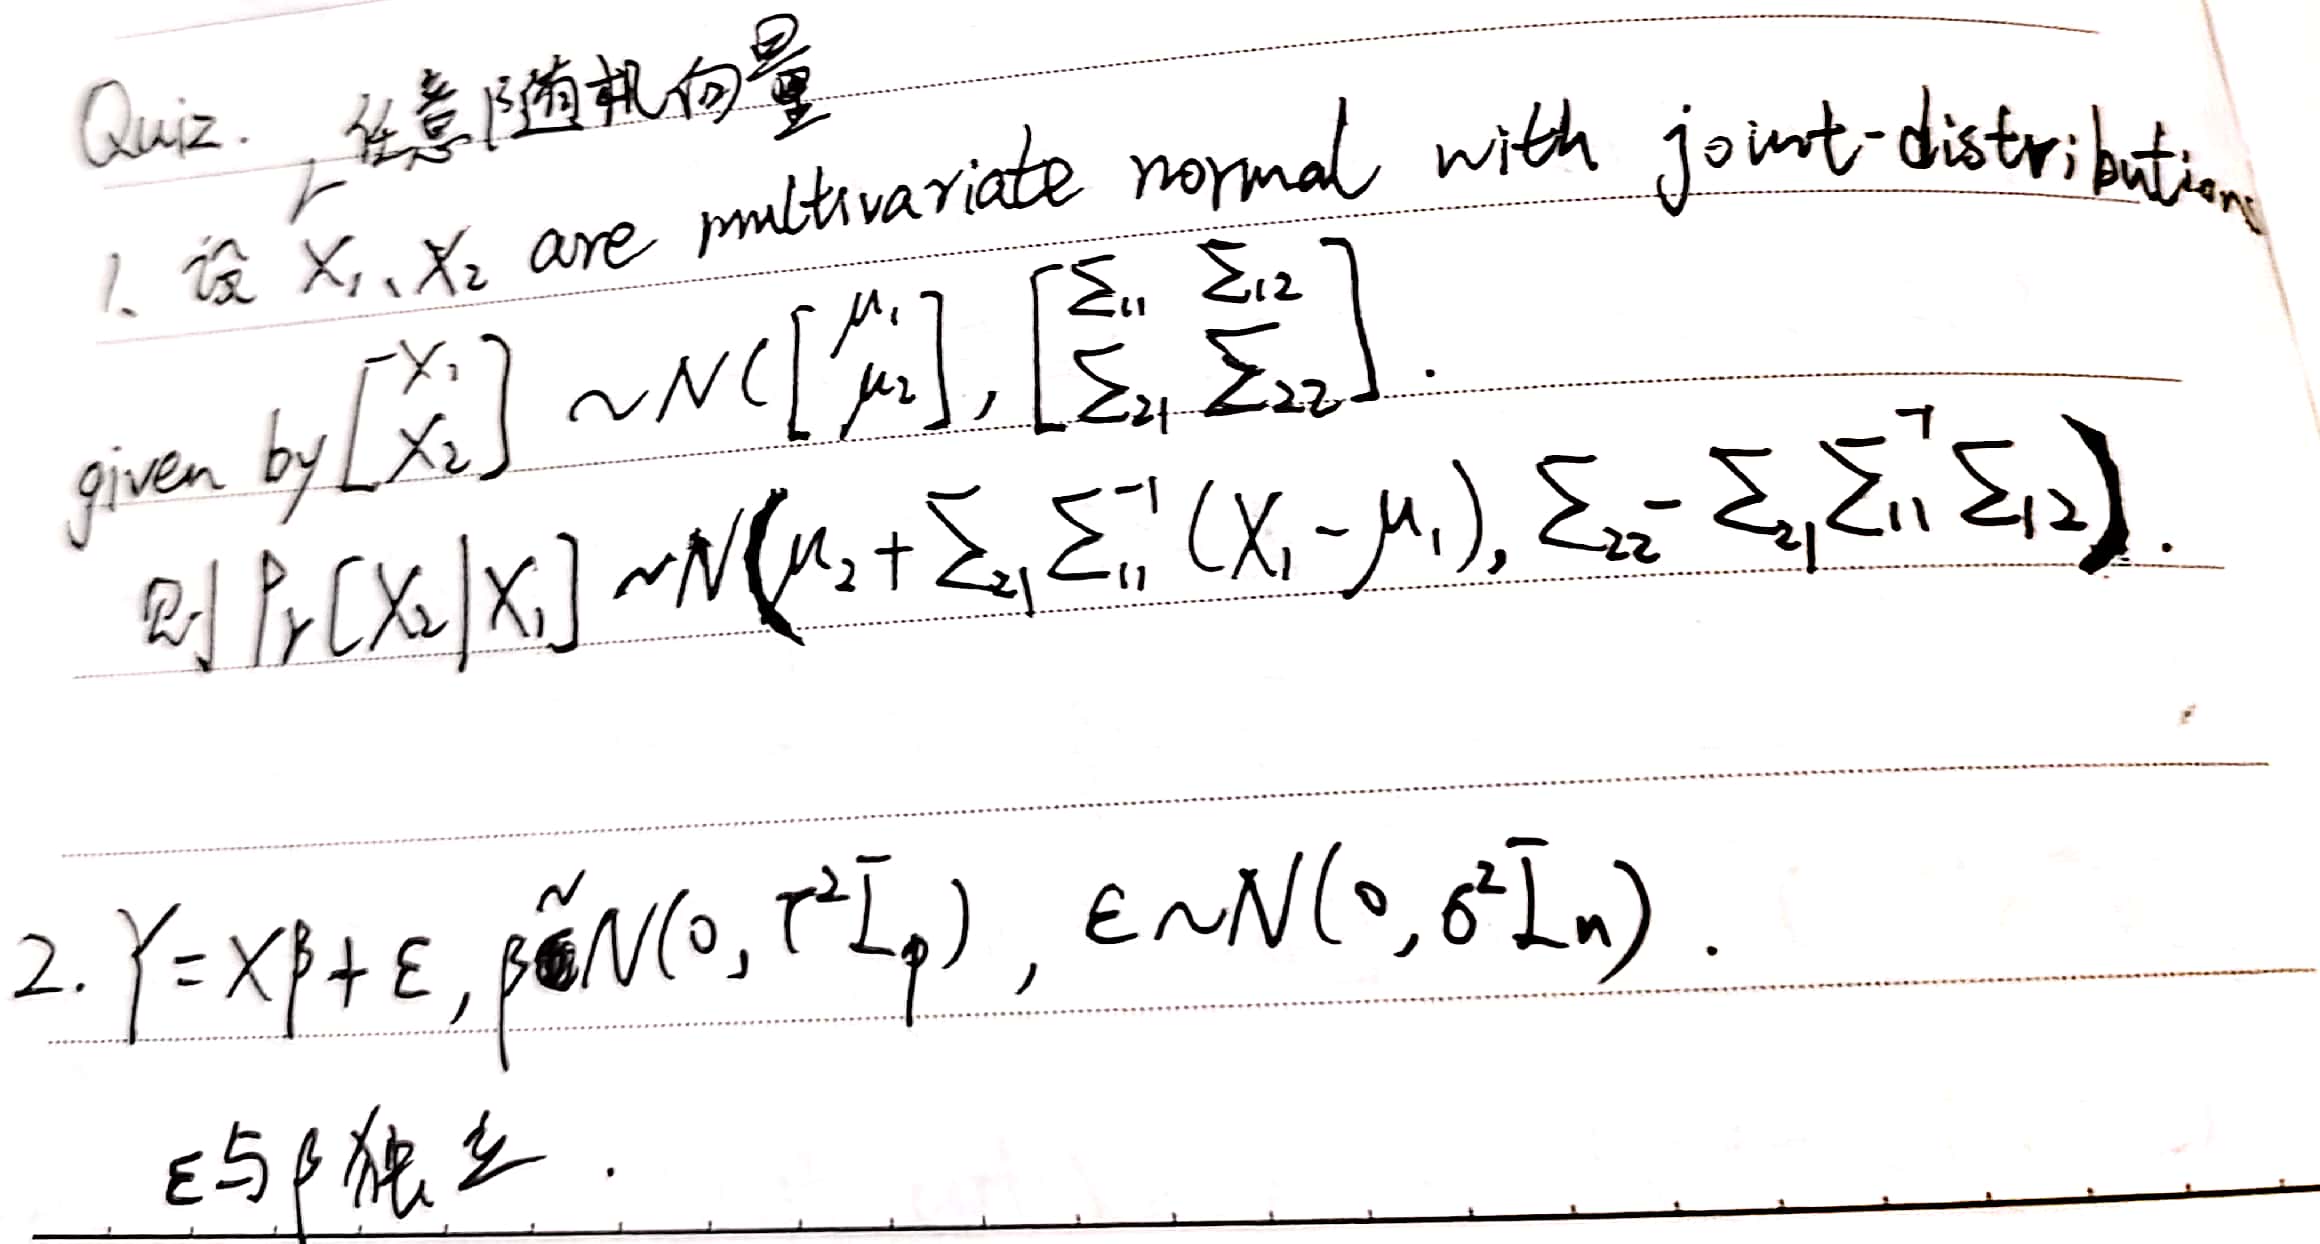 Quiz. 任意随机向量
1、设 X₁、X₂ are multivariate normal with joint-distributions
given by [X₁ X₂] ~N([μ₁ μ₂], [Σ₁₁ Σ₁₂ Σ₂₁ Σ₂₂].
则 Pr[X₂|X₁] ~N(μ₂+Σ₂₁Σ₁₁⁻¹(X₁-μ₁), Σ₂₂-Σ₂₁Σ₁₁⁻¹Σ₁₂).
2. Y=Xβ+ε, β~N(0, τ²Iₚ), ε~N(0, δ²Iₙ).
ε与β独立.